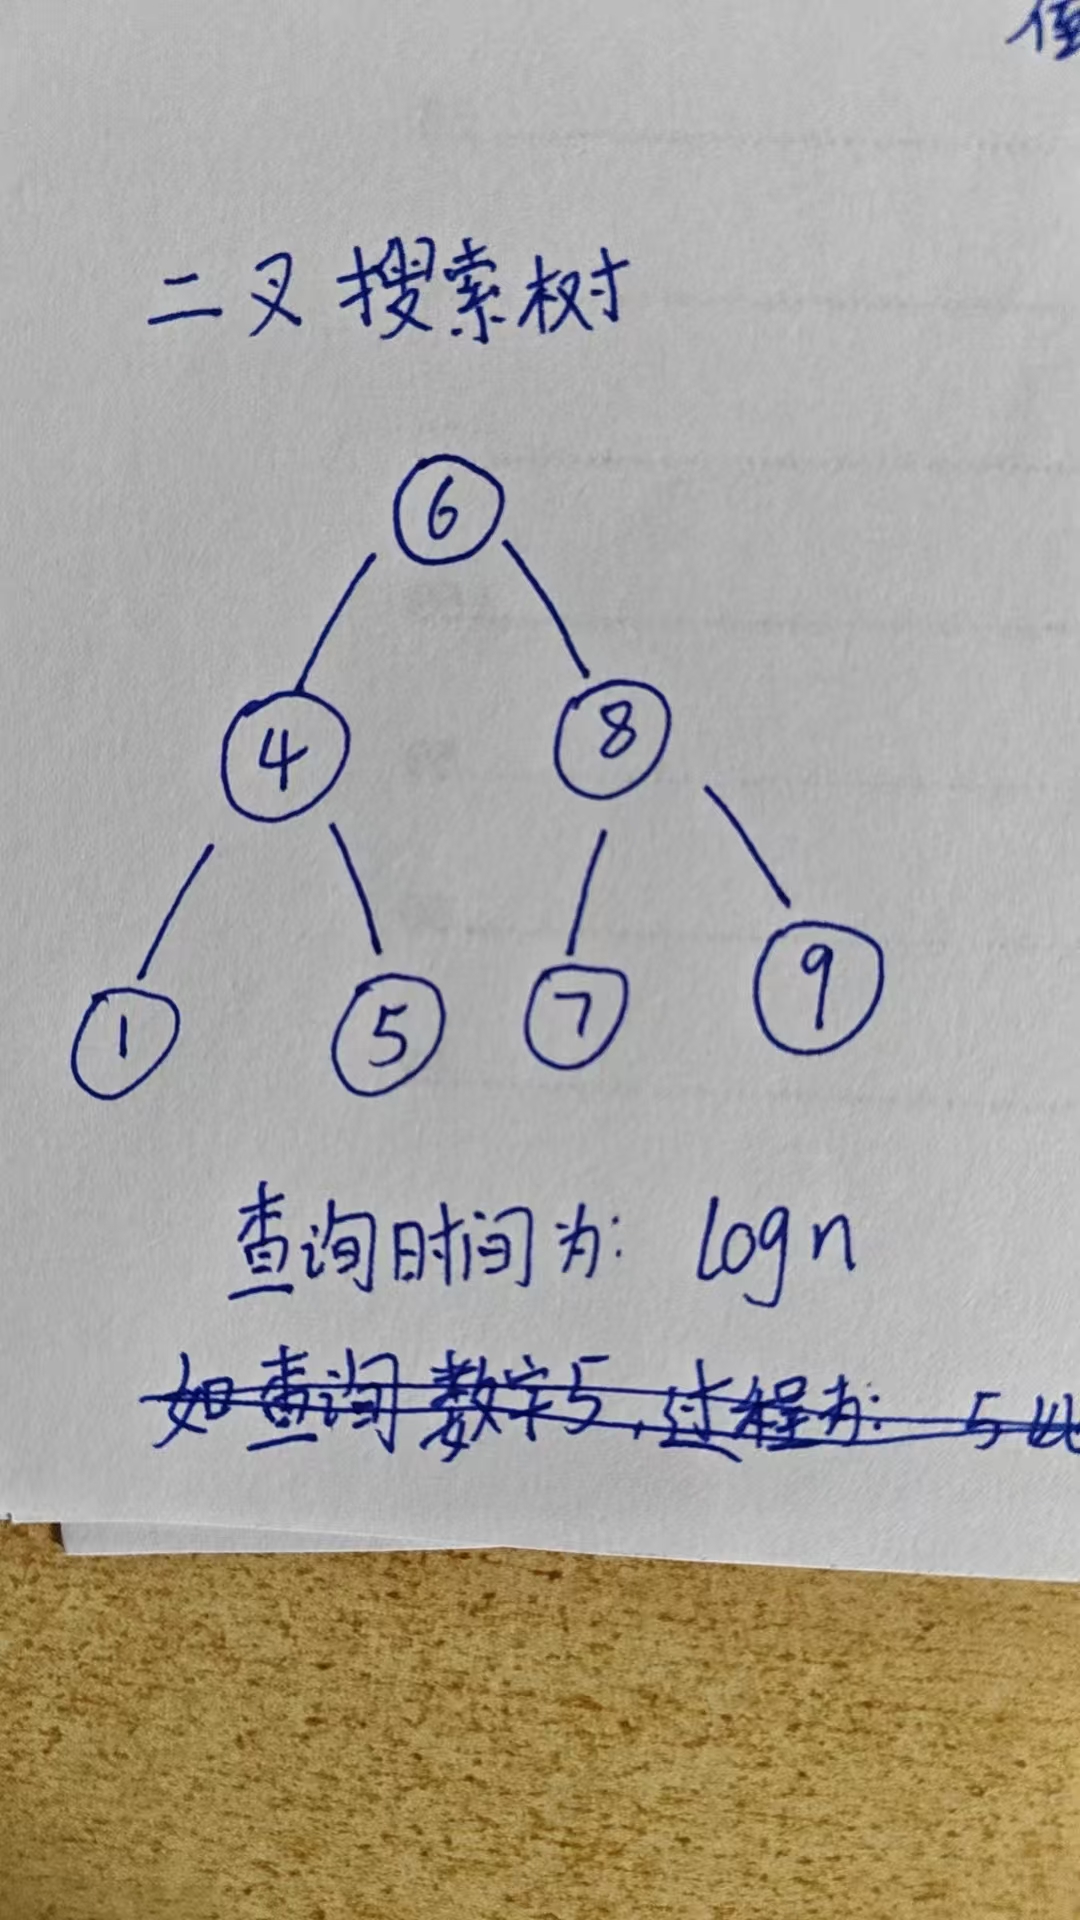 二叉搜索树
6
4 8
1 5 7 9
查询时间为: logn
如查询数字5,过程为: 5